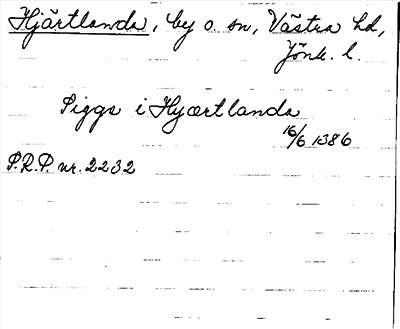 Hjärtlanda, by o. sn, Västra hd,
Jönk. l.
Sigga i Hjærtlanda
16/6 1386
S.R.P. nr. 2232